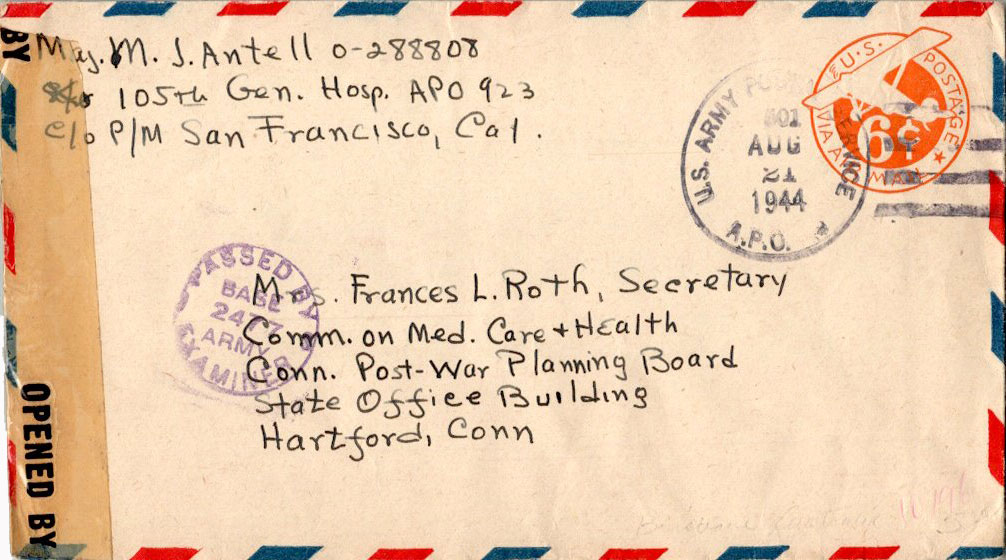 BY
Maj. M. J. Antell O-288808
105th Gen. Hosp. APO 923
c/o P/M San Francisco, Cal.
U.S. POSTAGE
6¢
VIA AIR MAIL
U.S. ARMY POSTAL SERVICE
AUG
21
1944
A.P.O.
PASSED BY
BASE
ARMY
EXAMINER
Mrs. Frances L. Roth, Secretary
Comm. on Med. Care + Health
Conn. Post-War Planning Board
State Office Building
Hartford, Conn
OPENED BY